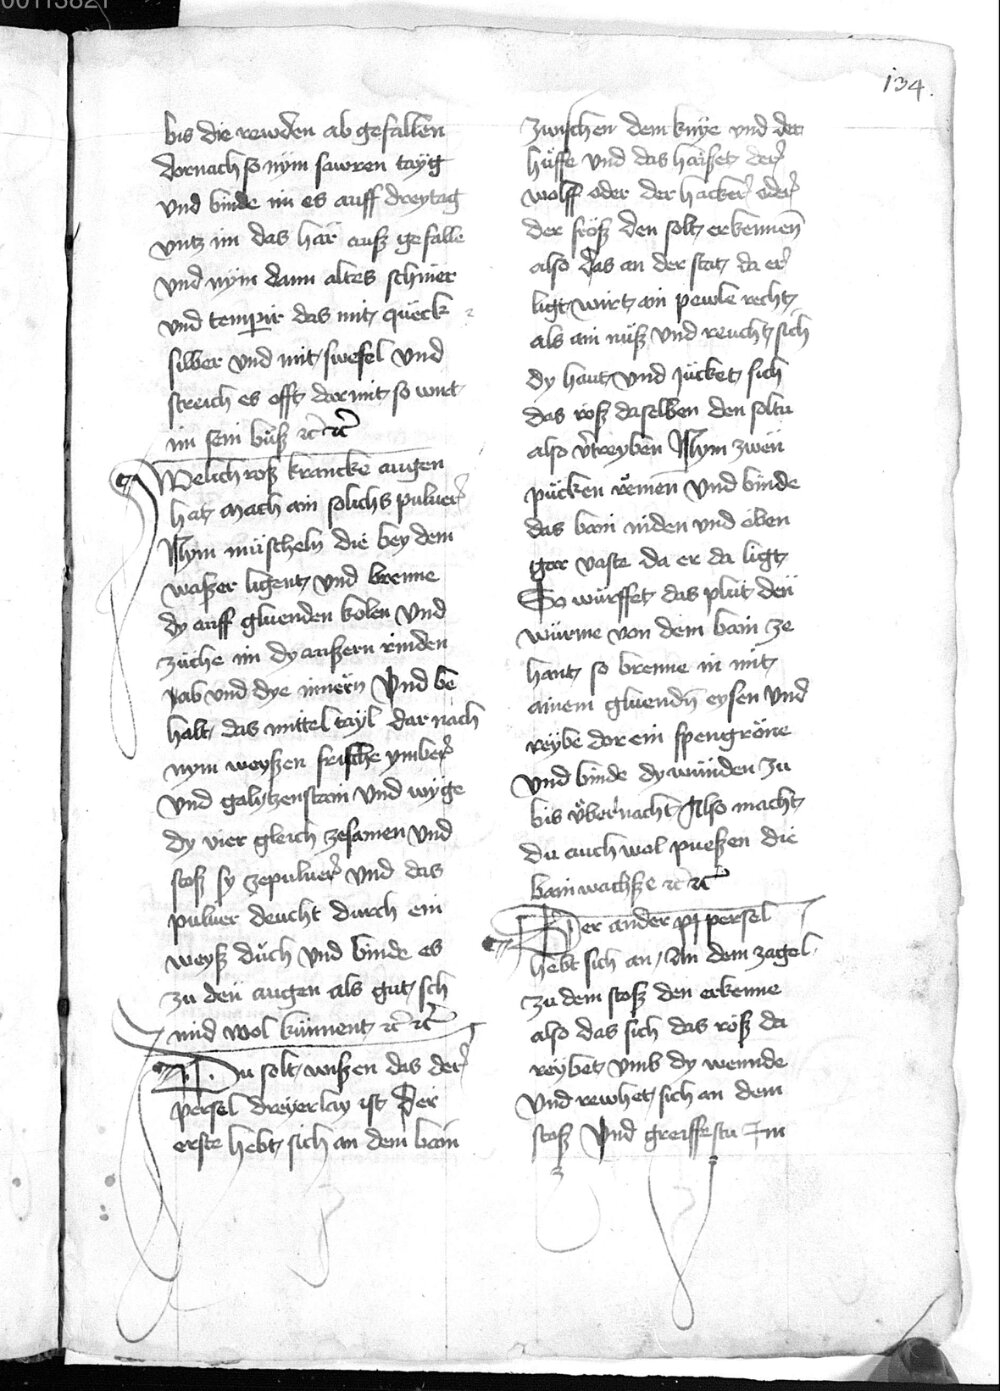 00113821
134.
bis die rewden ab gefallen
dornach so nÿm sawren tayg
vnd binde im es auff dreytag
vntz im das har auß gefalle
vnd nÿm dann altes schmer
vnd temperir das mit queck
silber vnd mit swefel vnd
streich es offt dar mit so wirt
im sein buß ⁊c̃ ⁊c̃
Welich roß krancke augen
hat mach ain solichs puluer
Nym müscheln die bey dem
waßer ligent vnd brenne
dy auff gluenden kolen vnd
züche im dy außern rinden
ab vnd dye innern Vnd be
halt das mittel tayl dar nach
nym weyßen frische ymber
vnd galitzenstain vnd wyge
dy vier gleich zesamen vnd
stoß sy zepuluer vnd das
puluer deucht durch ein
weyß duch vnd binde es
zu den augen als gut sch
mid wol künnent ⁊c̃ ⁊c̃
Du solt wißen das der
persel dreyerlay ist Der
erste hebt sich an dem bain
zwischen dem knÿe vnd der
hüffe vnd das haiset der
wolff oder der hacker oder
der fröß den solt erkennen
also das an der stat da er
ligt wirt ain pewle recht
als ain nuß vnd reucht sich
dy haut vnd jücket sich
das roß daselben den soltu
also vertreyben Nym zwen
pücken remen vnd binde
das bain niden vnd oben
gar vaste da er da ligt
So würffet das plut den
würme von dem bain ze
hant so brenne in mit
ainem gluendn̄ eysen vnd
reybe dor ein spengröne
vnd binde dy wunden zu
bis über nacht Also macht
du auch wol pueßen die
bain wachsze ⁊c̃ ⁊c̃
Der ander persel
hebt sich an / An dem zagel
zu dem stoß den erkenne
also das sich das roß da
reybet vmb dy wennde
vnd rewhet sich an dem
stoß Vnd greiffestu Im